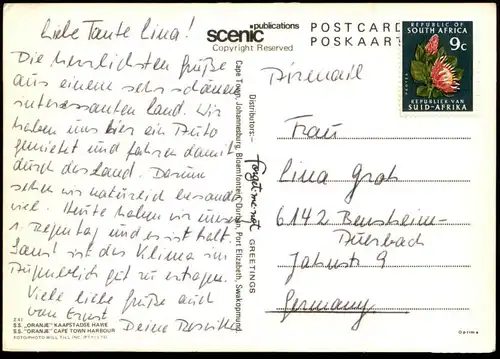 Liebe Tante Lina!
Die herzlichsten Grüße
aus einem sehr schönen
interessanten Land. Wir
haben uns hier ein Auto
gemietet und fahren damit
durch das Land. Darum
sehen wir natürlich besonders
viel. Heute haben wir unseren
1. Regentag und es ist kalt.
Sonst ist das Klima im
Augenblick gut zu ertragen.
Viele liebe Grüße auch
von Ernst
Deine
Z 41
S.S. "ORANJE" KAAPSTADSE HAWE
S.S. "ORANJE" CAPE TOWN HARBOUR
FOTO/PHOTO WILL TILL INC. (PTY.) LTD.
scenic publications
Copyright Reserved
Distributors:- Forget-me-not GREETINGS
Cape Town, Johannesburg, Bloemfontein, Durban, Port Elizabeth, Swakopmund
POSTCARD
POSKAART
REPUBLIC OF
SOUTH AFRICA
9c
PROTEA
REPUBLIEK VAN
SUID-AFRIKA
Airmail
Frau
Lina Groh
6142 Bensheim-
Auerbach
Jahnstr 9
Germany
Optima